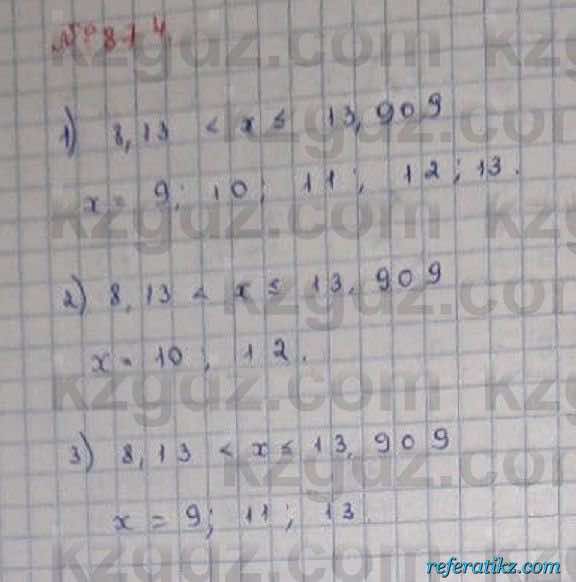 № 814.
1) 8,13 < x ≤ 13,909
x = 9; 10; 11; 12; 13.
2) 8,13 < x ≤ 13,909
x = 10; 12.
3) 8,13 < x ≤ 13,909
x = 9; 11; 13.
kzgdz.com
referatikz.com